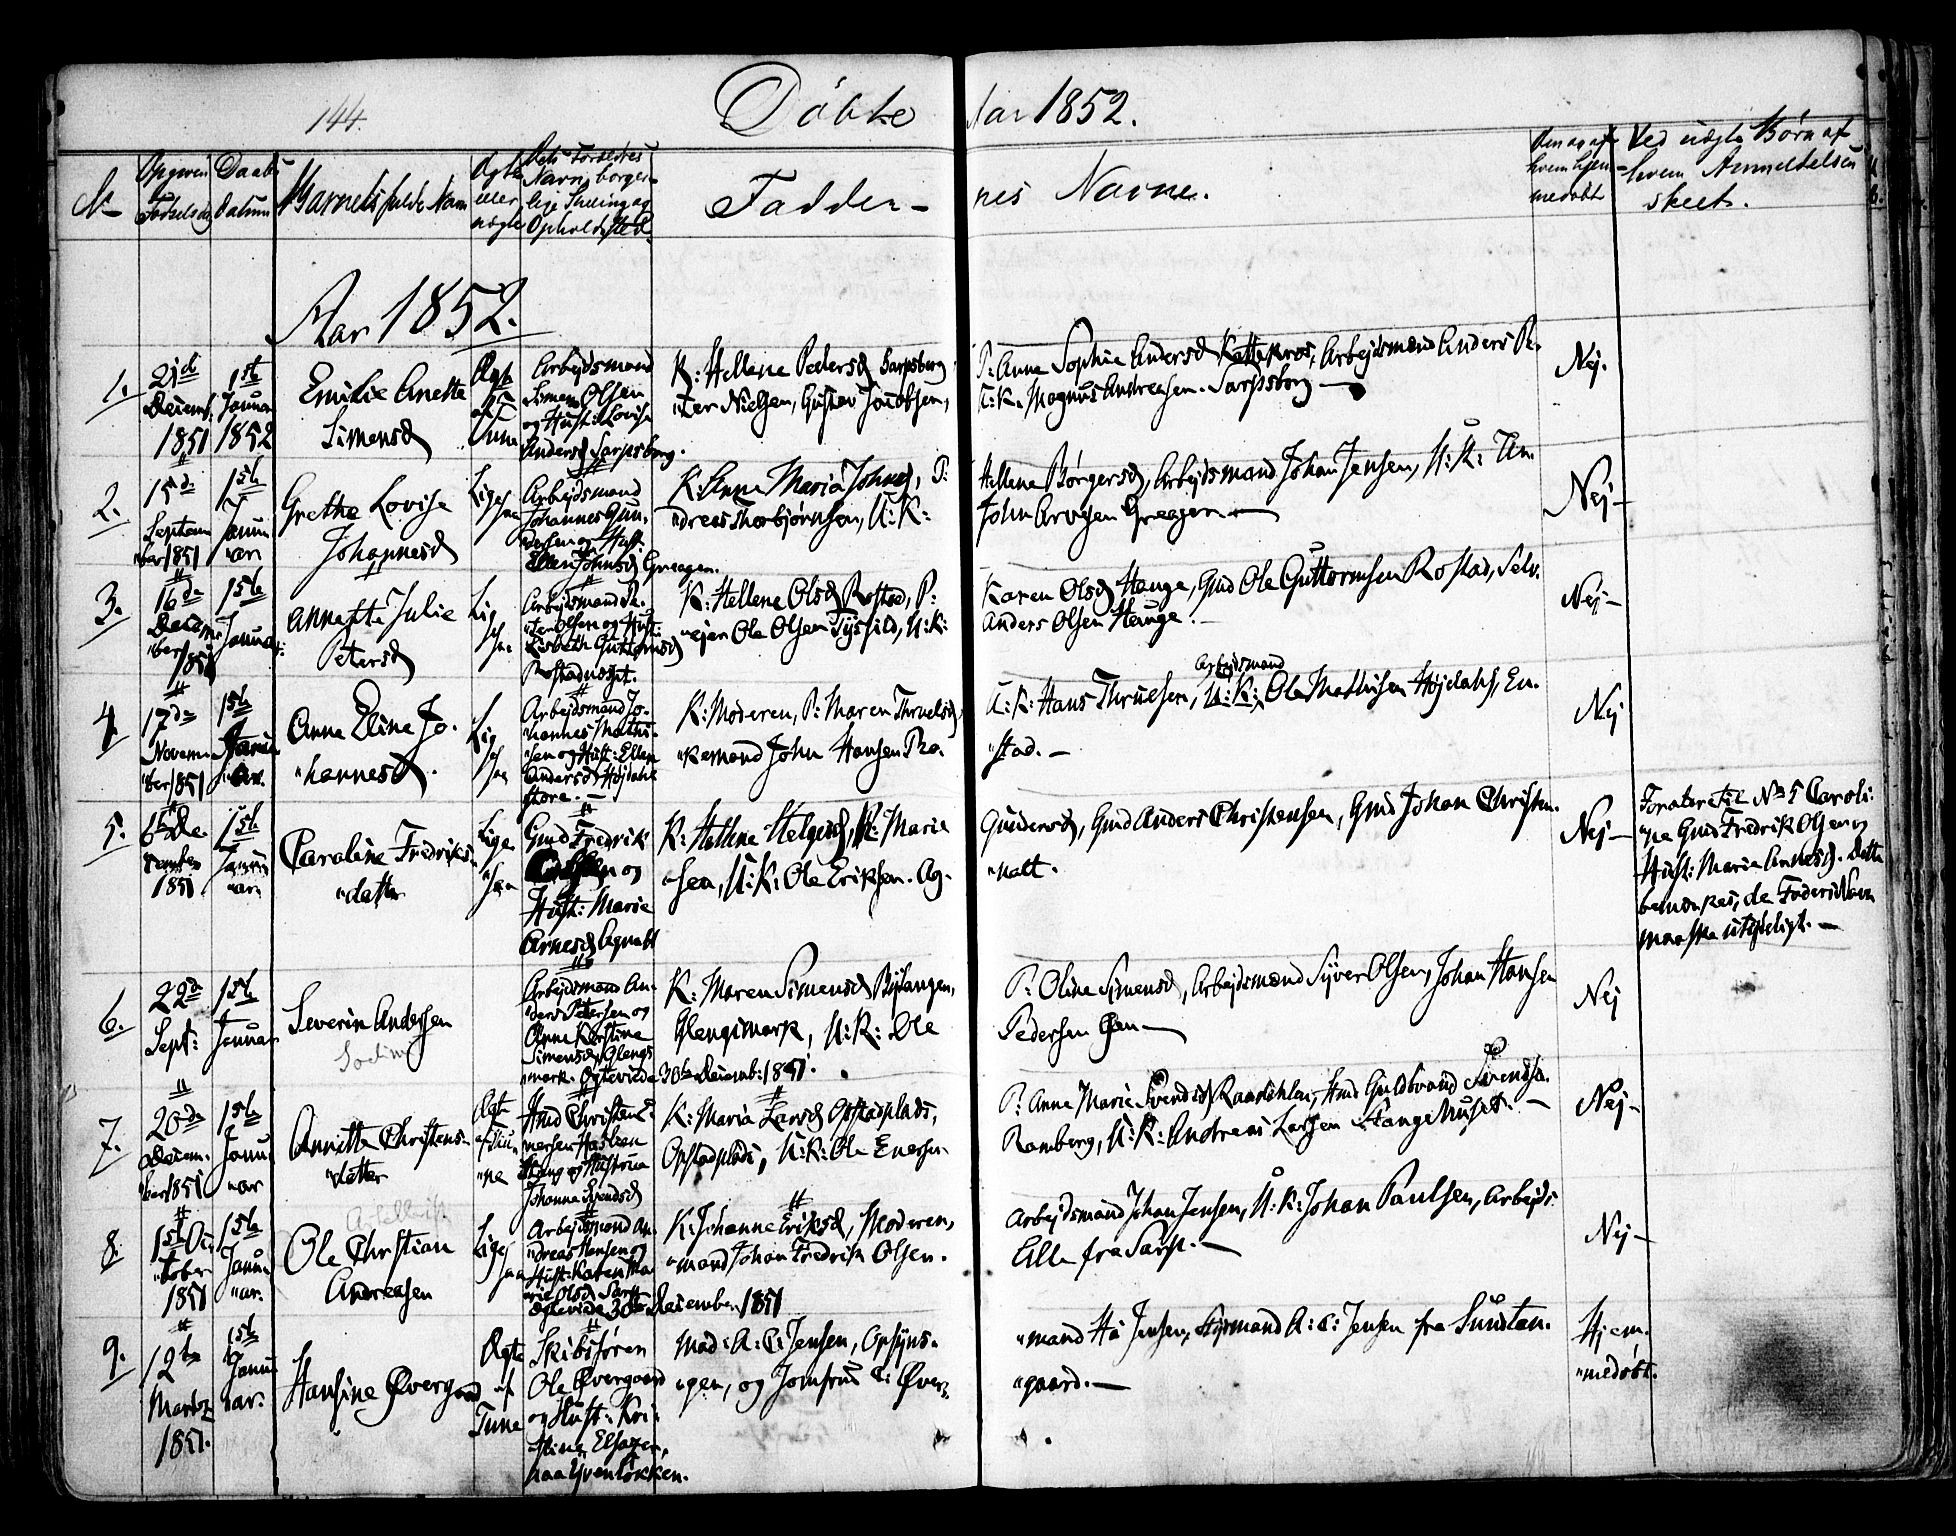 144.
Döbte Aar 1852.
No
Opgiven Födselsdag
Daabs datum
Barnets fulde Navn
Ægte eller uægte
Dets Forældres Navn, borgerlige Stilling og Opholdssted.
Faddernes Navne.
Om og af hvem hjemmedöbt
Ved uægte Börn af hvem Anmeldelsen skeet.
Aar 1852.
1.
21de
Decemb.
1851
1ste
Januar
1852
Emilie Anette
Simensd
Ægte
af
Tune
Arbejdsmand
Simen Olsen
og Hust: Lovise
Andersd Sarpsborg.
K: Hellene Pedersd Sarpsborg, P: Anne Sophie Andersd Kattekros, Arbejdsmand Anders Pe-
"ter Nielsen, Gustav Jacobsen, U: K: Magnus Andreasen. Sarpsborg —
Nej.
2.
15de
Septem
"ber 1851
1ste
Janu
"ar
Grethe Lovise
Johannesd
Ligesaa
Arbejdsmand
Johannes Gun-
"dersen og Hust:
Ellen Johnsd Greagen.
K: Anne Maria Johnsd, P: Hellene Börgersd, Arbejdsmand Johan Jensen, U: K: An-
"dreas Thorbjörnsen, U: K: John Arvesen Greagen —
Nej —
3.
16de
Decem
"ber
1851
1ste
Januar.
Annette Julie
Petersd
Ligesaa
Arbejdsmand Pe-
"ter Olsen og Hust:
Lisbeth Guttormsd
Rostadvaget.
K: Hellene Olsd Rostad, P: Karen Olsd Hauge, Gmd Ole Guttormsen Rostad, Selv-
"ejer Ole Olsen Tysfild, U: K: Anders Olsen Hauge. —
Nej —
4.
17de
Novem
"ber 1851
1ste
Janu
"ar.
Anne Eline Jo-
"hannesd.
Ligesaa
Arbejdsmand Jo-
"hannes Mathi-
"sen og Hust: Ellen
Andersd Höjdahl
store. —
Arbejdsmand
K: Moderen, P: Maren Thruelsd, U: K: Hans Thruelsen, U: K: Ole Mathisen Höjdahl, En-
"kemand John Hansen Tho- "stad. —
Nej
5.
6te De-
cember
1851
1ste
Janu
"ar
Caroline Fredriks-
"datter
Ligesaa
Gmd Fredrik
og
Hust: Marie
Arnesd Agnalt
K: Hellene Helgesd, P: Marie Gundersd, Gmd Anders Christensen, Gmd Johan Christen-
"sen, U: K: Ole Eriksen. Ag- "nalt.
Nej —
Forældre til No 5 Caroli-
"ne Gmd Fredrik Olsen og
Hust: Marie Arnesd. Dette
bemærkes, da Faderens Navn
maaske utydeligt. —
6.
22de
Sept:
1ste
Januar
Severin Andersen
Arbejdsmand An-
"ders Petersen og
Anne Kirstine
Simensd, Glengs
"mark. Ægteviede 30te Decemb: 1851.
K: Maren Simensd Bjölangen, P: Oline Simensd, Arbejdsmand Syver Olsen, Johan Hansen
Glengsmark, U: K: Ole Pedersen —
Nej
7.
20de
Decem-
"ber 1851
1ste
Janu
"ar
Annette Christens-
"datter
Ægte
af Tu-
"ne
Hmd Christen E-
"nersen
og Hustrue
Johanna Svendsd
K: Maria Larsd Opstadplads, P: Anne Marie Svendsd Raadihlen, Hmd Guldbrand Svendsen
Opstadplads, U: K: Ole Enersen Ramberg, U: K: Andreas Larsen Hange Muset. —
Nej —
8.
1ste Oc-
"tober
1851
1ste
Janu-
"ar.
Ole Christian
Andreasen
Ligesaa
Arbejdsmand An-
"dreas Hansen og
Hust: Karen Ma-
rie Olsd Sarp
Ægteviede 30te December 1851
K: Johanne Eriksd, Moderen, Arbejdsmand Johan Jensen, U: K: Johan Paulsen, Arbejds-
"mand Johan Fredrik Olsen. Alle fra Sarp. —
Nej —
9.
12te
Marts
1851.
1ste
Janu
"ar.
Hansine Övergaard
Ægte
af
Tune
Skibsfören
Ole Övergaard
og Hust: Kri-
"stine Elsazer,
paa Yvenlökken.
Mad: A: C: Jensen, Opsyns- "mand Hs Jensen, Styrmand A: C: Jensen fra Sundlan-
"gen, og Jomfru C: Över- "gaard. —
Hjem-
"medöbt.